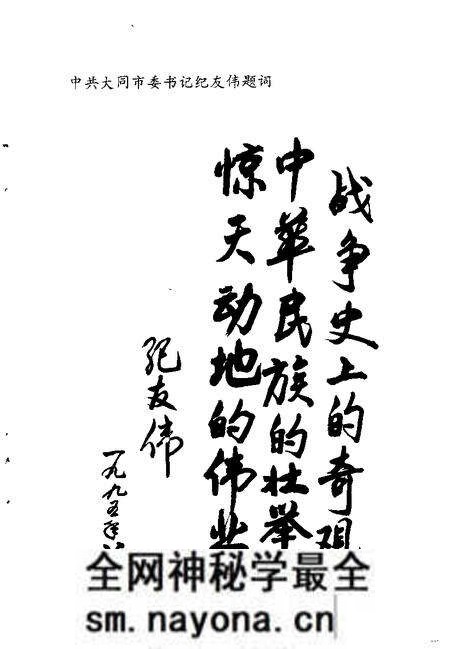 中共大同市委书记纪友伟题词
战争史上的奇观
中华民族的壮举
惊天动地的伟业
纪友伟
一九九五年八
全网神秘学最全
sm.nayona.cn